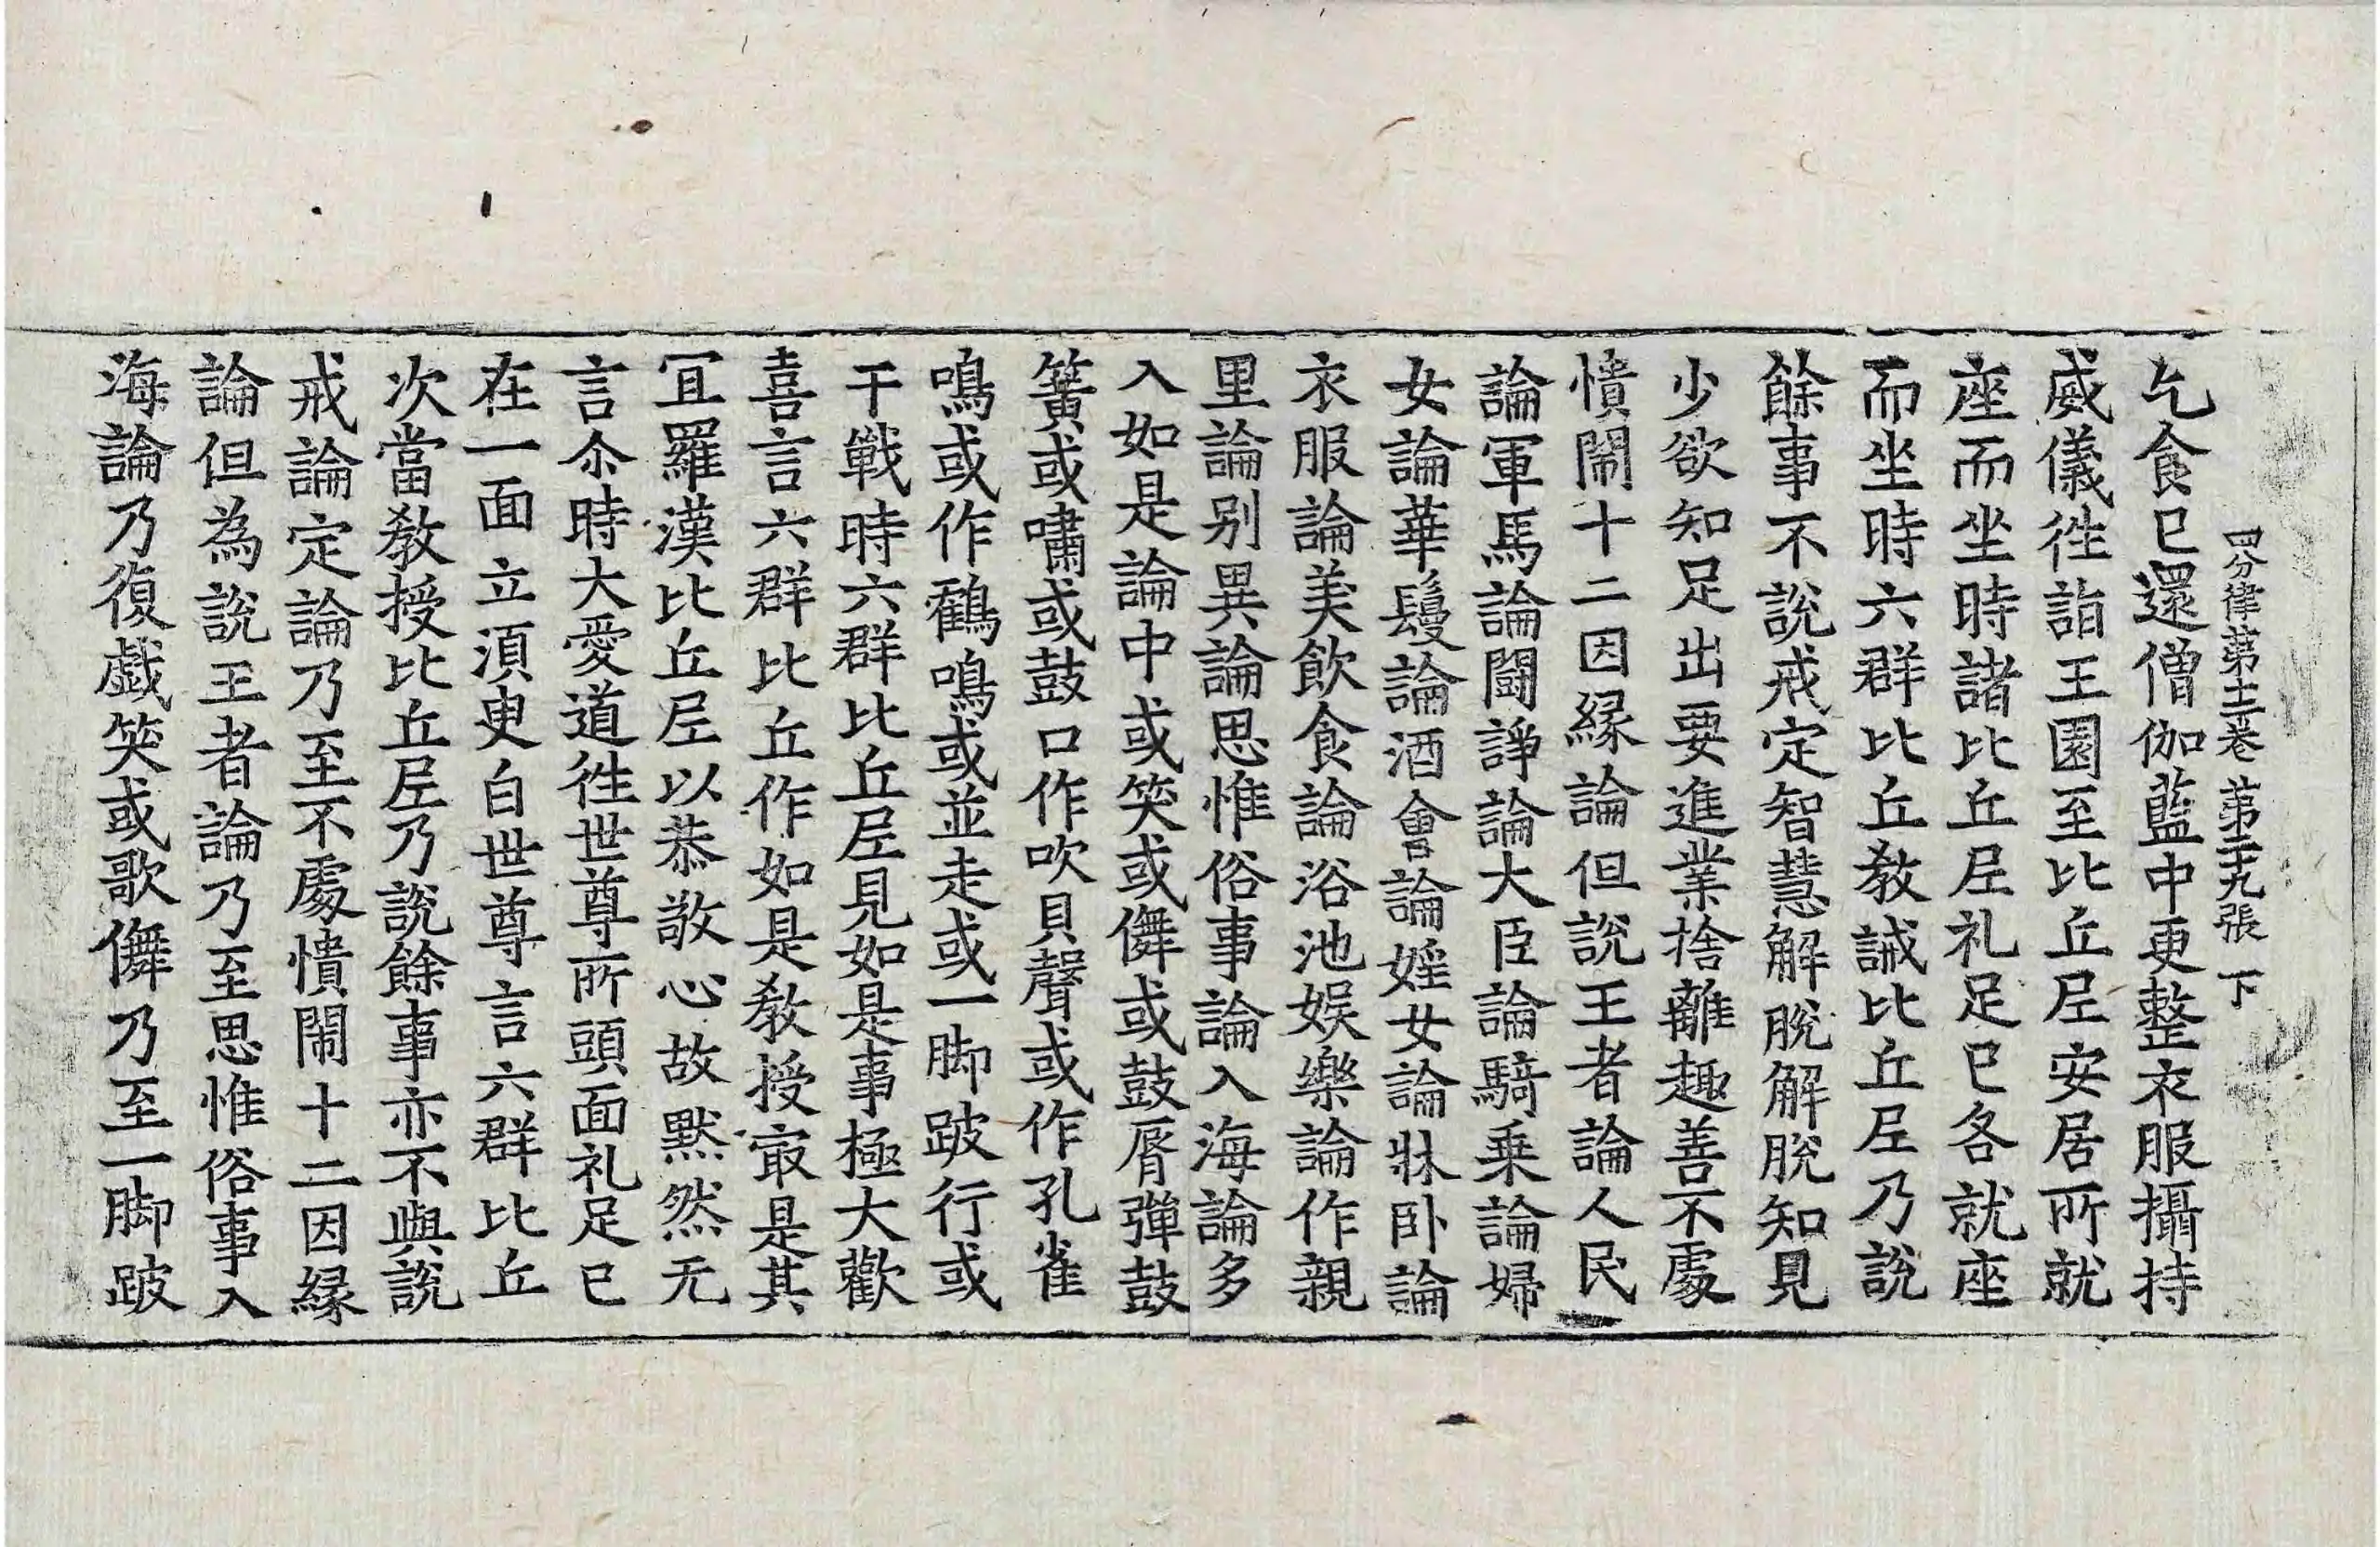 四分律第十二卷 第三十九張 下
乞食已還僧伽藍中更整衣服攝持
威儀徃詣王園至比丘尼安居所就
座而坐時諸比丘尼礼足已各就座
而坐時六群比丘教誡比丘尼乃說
餘事不說戒定智慧解脫解脫知見
少欲知足出要進業捨離趣善不處
憒閙十二因緣論但說王者論人民
論軍馬論鬪諍論大臣論騎乗論婦
女論華鬘論酒會論婬女論牀卧論
衣服論美飲食論浴池娛樂論作親
里論别異論思惟俗事論入海論多
入如是論中或笑或儛或鼓脣彈鼓
簧或嘯或鼓口作吹貝聲或作孔雀
鳴或作鶴鳴或並走或一脚跛行或
干戰時六群比丘尼見如是事極大歡
喜言六群比丘作如是教授㝡是其
冝羅漢比丘尼以恭敬心故黙然无
言尒時大愛道徃世尊所頭面礼足已
在一面立湏臾白世尊言六群比丘
次當教授比丘尼乃說餘事亦不與說
戒論定論乃至不處憒閙十二因緣
論但為說王者論乃至思惟俗事入
海論乃復戯笑或歌儛乃至一脚跛